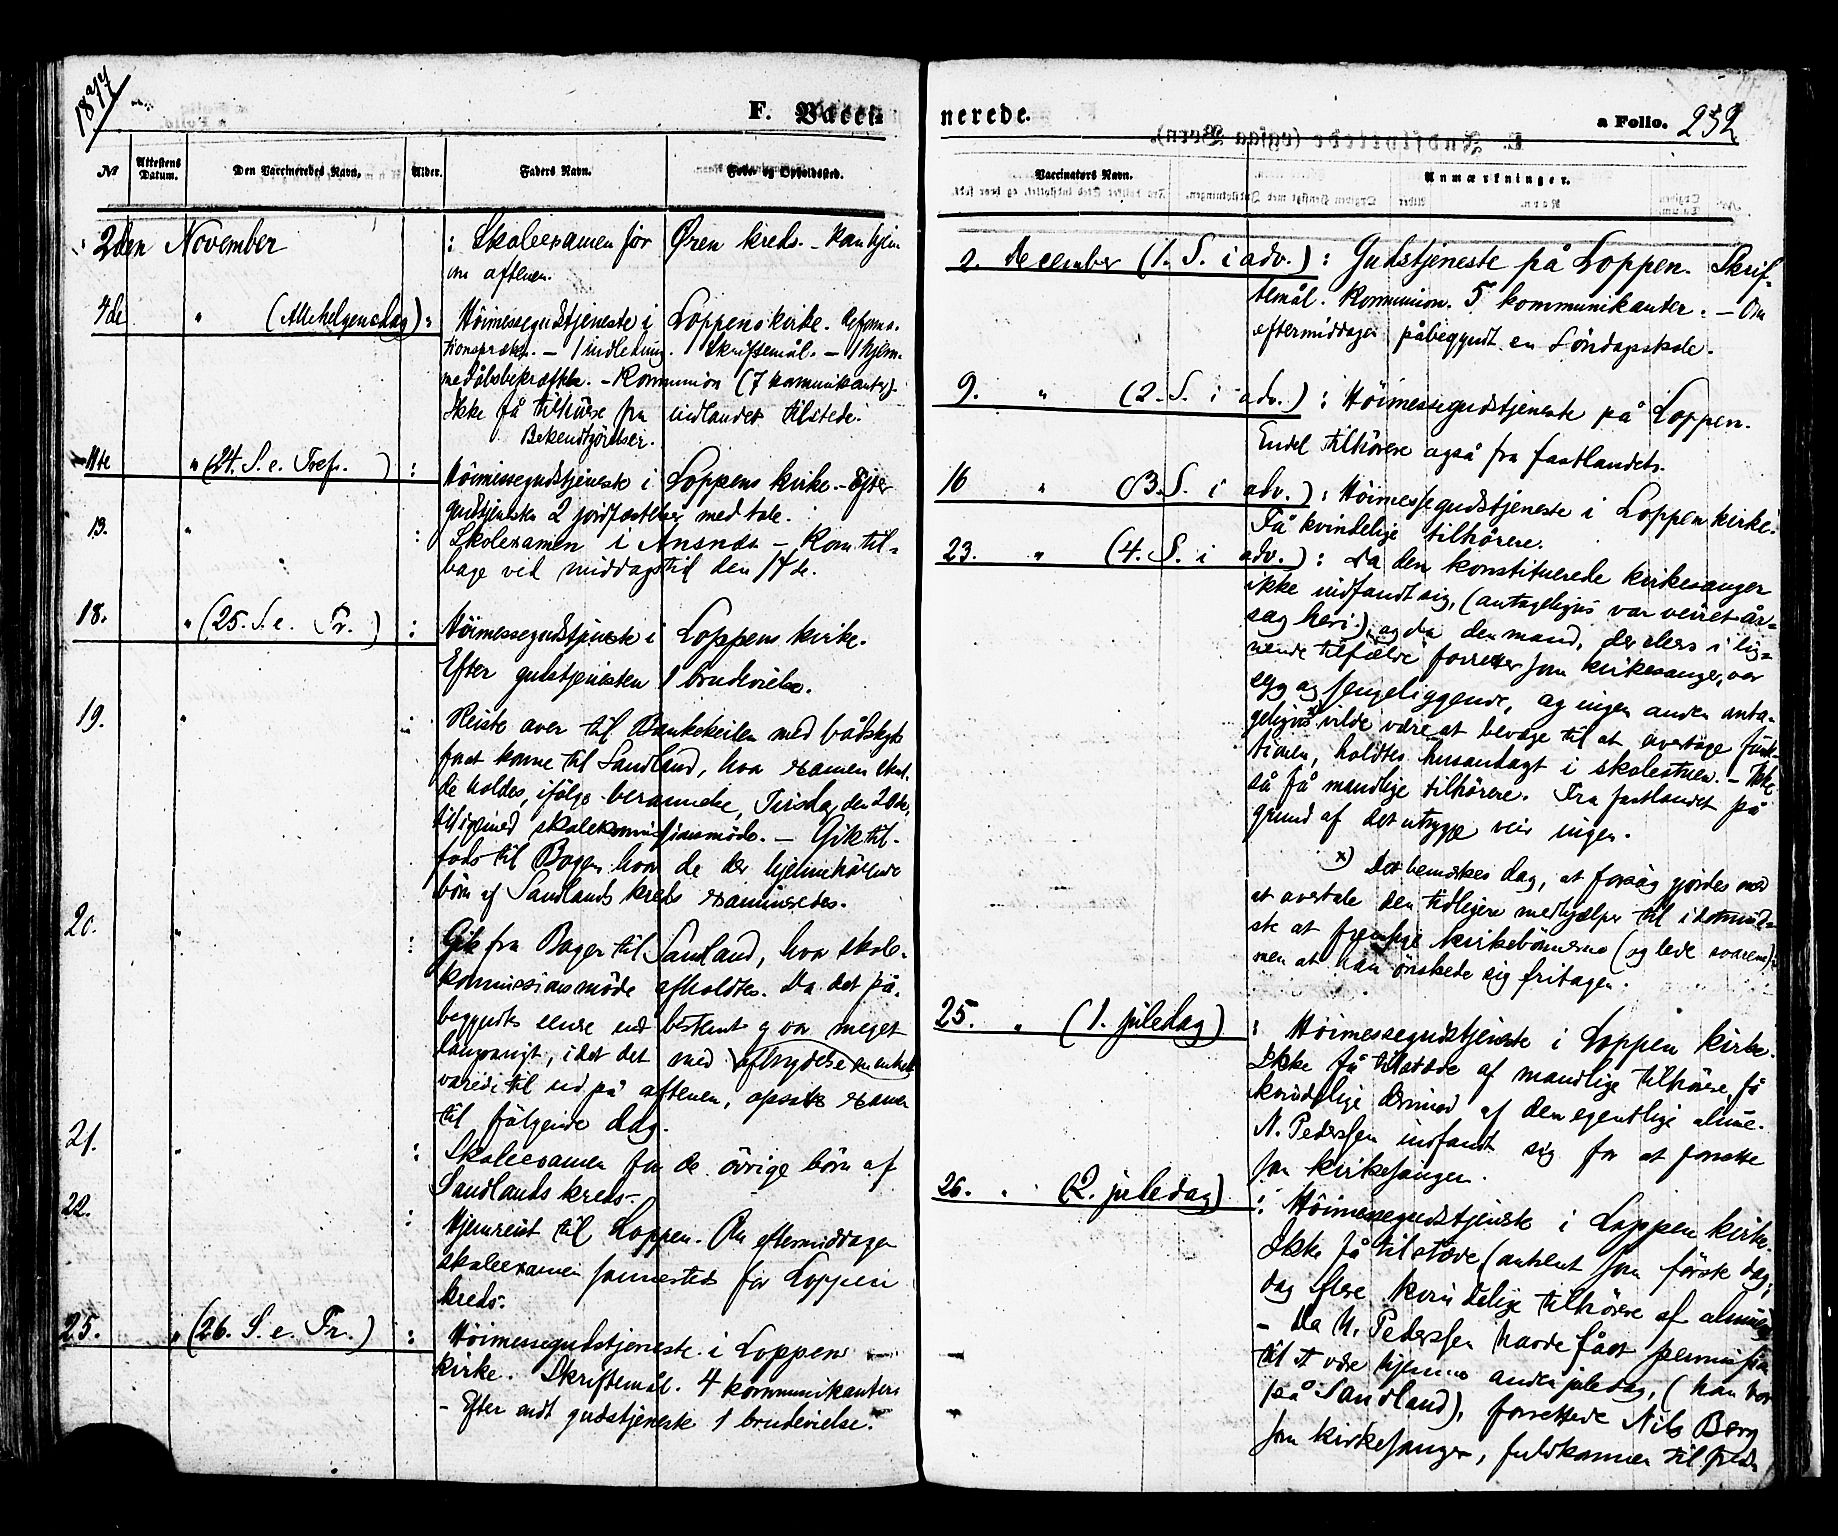 1877
F. Vacci-
№ Attestens Datum. Den Vaccineredes Navn. Alder. Faders Navn. Føde- og Opholdssted.
2den November : Skoleexamen for Øren kreds. – Kom hjem
om aftenen.
4de " (Allehelgensdag) : Høimessegudstjeneste i Loppens kirke. Reforma-
tionspræken. – 1 indledning. Skriftemål. – 1 hjem-
medåbsbekræftelse. – Kommunion (7 kommunikanter).
Ikke få tilhørere fra indlandet tilstede.
Bekendtgørelser.
11te " (24. S. e. Tref. ) : Høimessegudstjeneste i Loppens kirke. – Efter
gudstjenesten 2 jordfæstelser med tale.
13. " : Skolexamen i Ansnes – Kom til-
bage ved middagstid den 14de.
18. " (25. S. e. Tr. ) : Høimessegudstjeneste i Loppens kirke.
Efter gudstjenesten 1 brudevielse.
19. " : Reiste over til med bådskyds
for at komme til Sandland, hvor examen skul-
de holdes, ifølge berammelse, Tirsdag den 20de,
tilligemed skolekommissionsmøde. – Gik til-
fods til Bogen hvor de der hjemmehørende
børn af Sandlands kreds examineredes.
20. " : Gik fra Bogen til Sandland, hvor skole-
kommissionsmøde afholdtes. Da det på-
begyndtes senere end bestemt og var meget
langvarigt, idet det med afbrydelse
varede til ud på aftenen, opsattes examen
til følgende dag.
21. " : Skoleexamen for de øvrige børn af
Sandlands kreds –
22. : Hjemreist til Loppen. Om eftermiddagen
skoleexamen sammesteds for Loppen
kreds.
25. " (26. S. e. Tr. ) : Høimessegudstjeneste i Loppens
kirke. Skriftemål. 4 kommunikanter
– Efter endt gudstjeneste 1 brudevielse.
nerede. a Folio. 232
Vaccinators Navn. Anmærkninger.
2. December (1. S. i adv.) : Gudstjeneste på Loppen. Skrif-
temål. Kommunion. 5 kommunikanter. – Om
eftermiddagen påbegyndt en Søndagsskole.
9. " (2. S. i adv.) : Høimessegudstjeneste på Loppen.
Endel tilhørere også fra fastlandet.
16 " (3. S. i adv.) : Høimessegudstjeneste i Loppen kirke.
Få kvindelige tilhørere.
23. " (4. S. i adv.) : Da den konstituerede kirkesanger
ikke indfandt sig, (antageligvis var veiret år-
sag heri), og da den mand, der ellers i lig-
nende tilfælde forretter som kirkesanger, var
syg og sengeliggende, og ingen anden anta-
geligvis x) vilde være at bevæge til at overtage funk-
tionen, holdtes husandagt i skolestuen. – Ikke
så få mandlige tilhørere. Fra fastlandet på
grund af det utrygge veir ingen.
x) Det bemærkes dog, at forsøg gjordes med
at overtale den tidligere medhjælper til idetmind-
ste at fremsige kirkebønnerne (og lede svarene),
men at han ønskede sig fritagen.
25. " (1. juledag) : Høimessegudstjeneste i Loppen kirke.
Ikke få tilstede af mandlige tilhørere, få
kvindelige derimod af den egentlige almue.
N. Pederssen indfandt sig for at forrette
som kirkesanger.
26. " (2. juledag) : Høimessegudstjeneste i Loppen kirke.
Ikke få tilstede (omtrent som første dag,
dog flere kvindelige tilhørere af almuen)
– Da N. Pederssen havde fået permission
til at være hjemme anden juledag, (han bor
på Sandland), forrettede Nils Berg
som kirkesanger, fuldkommen til